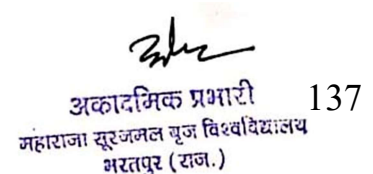 अकादमिक प्रभारी 137
महाराजा सूरजमल बृज विश्वविद्यालय
भरतपुर (राज.)